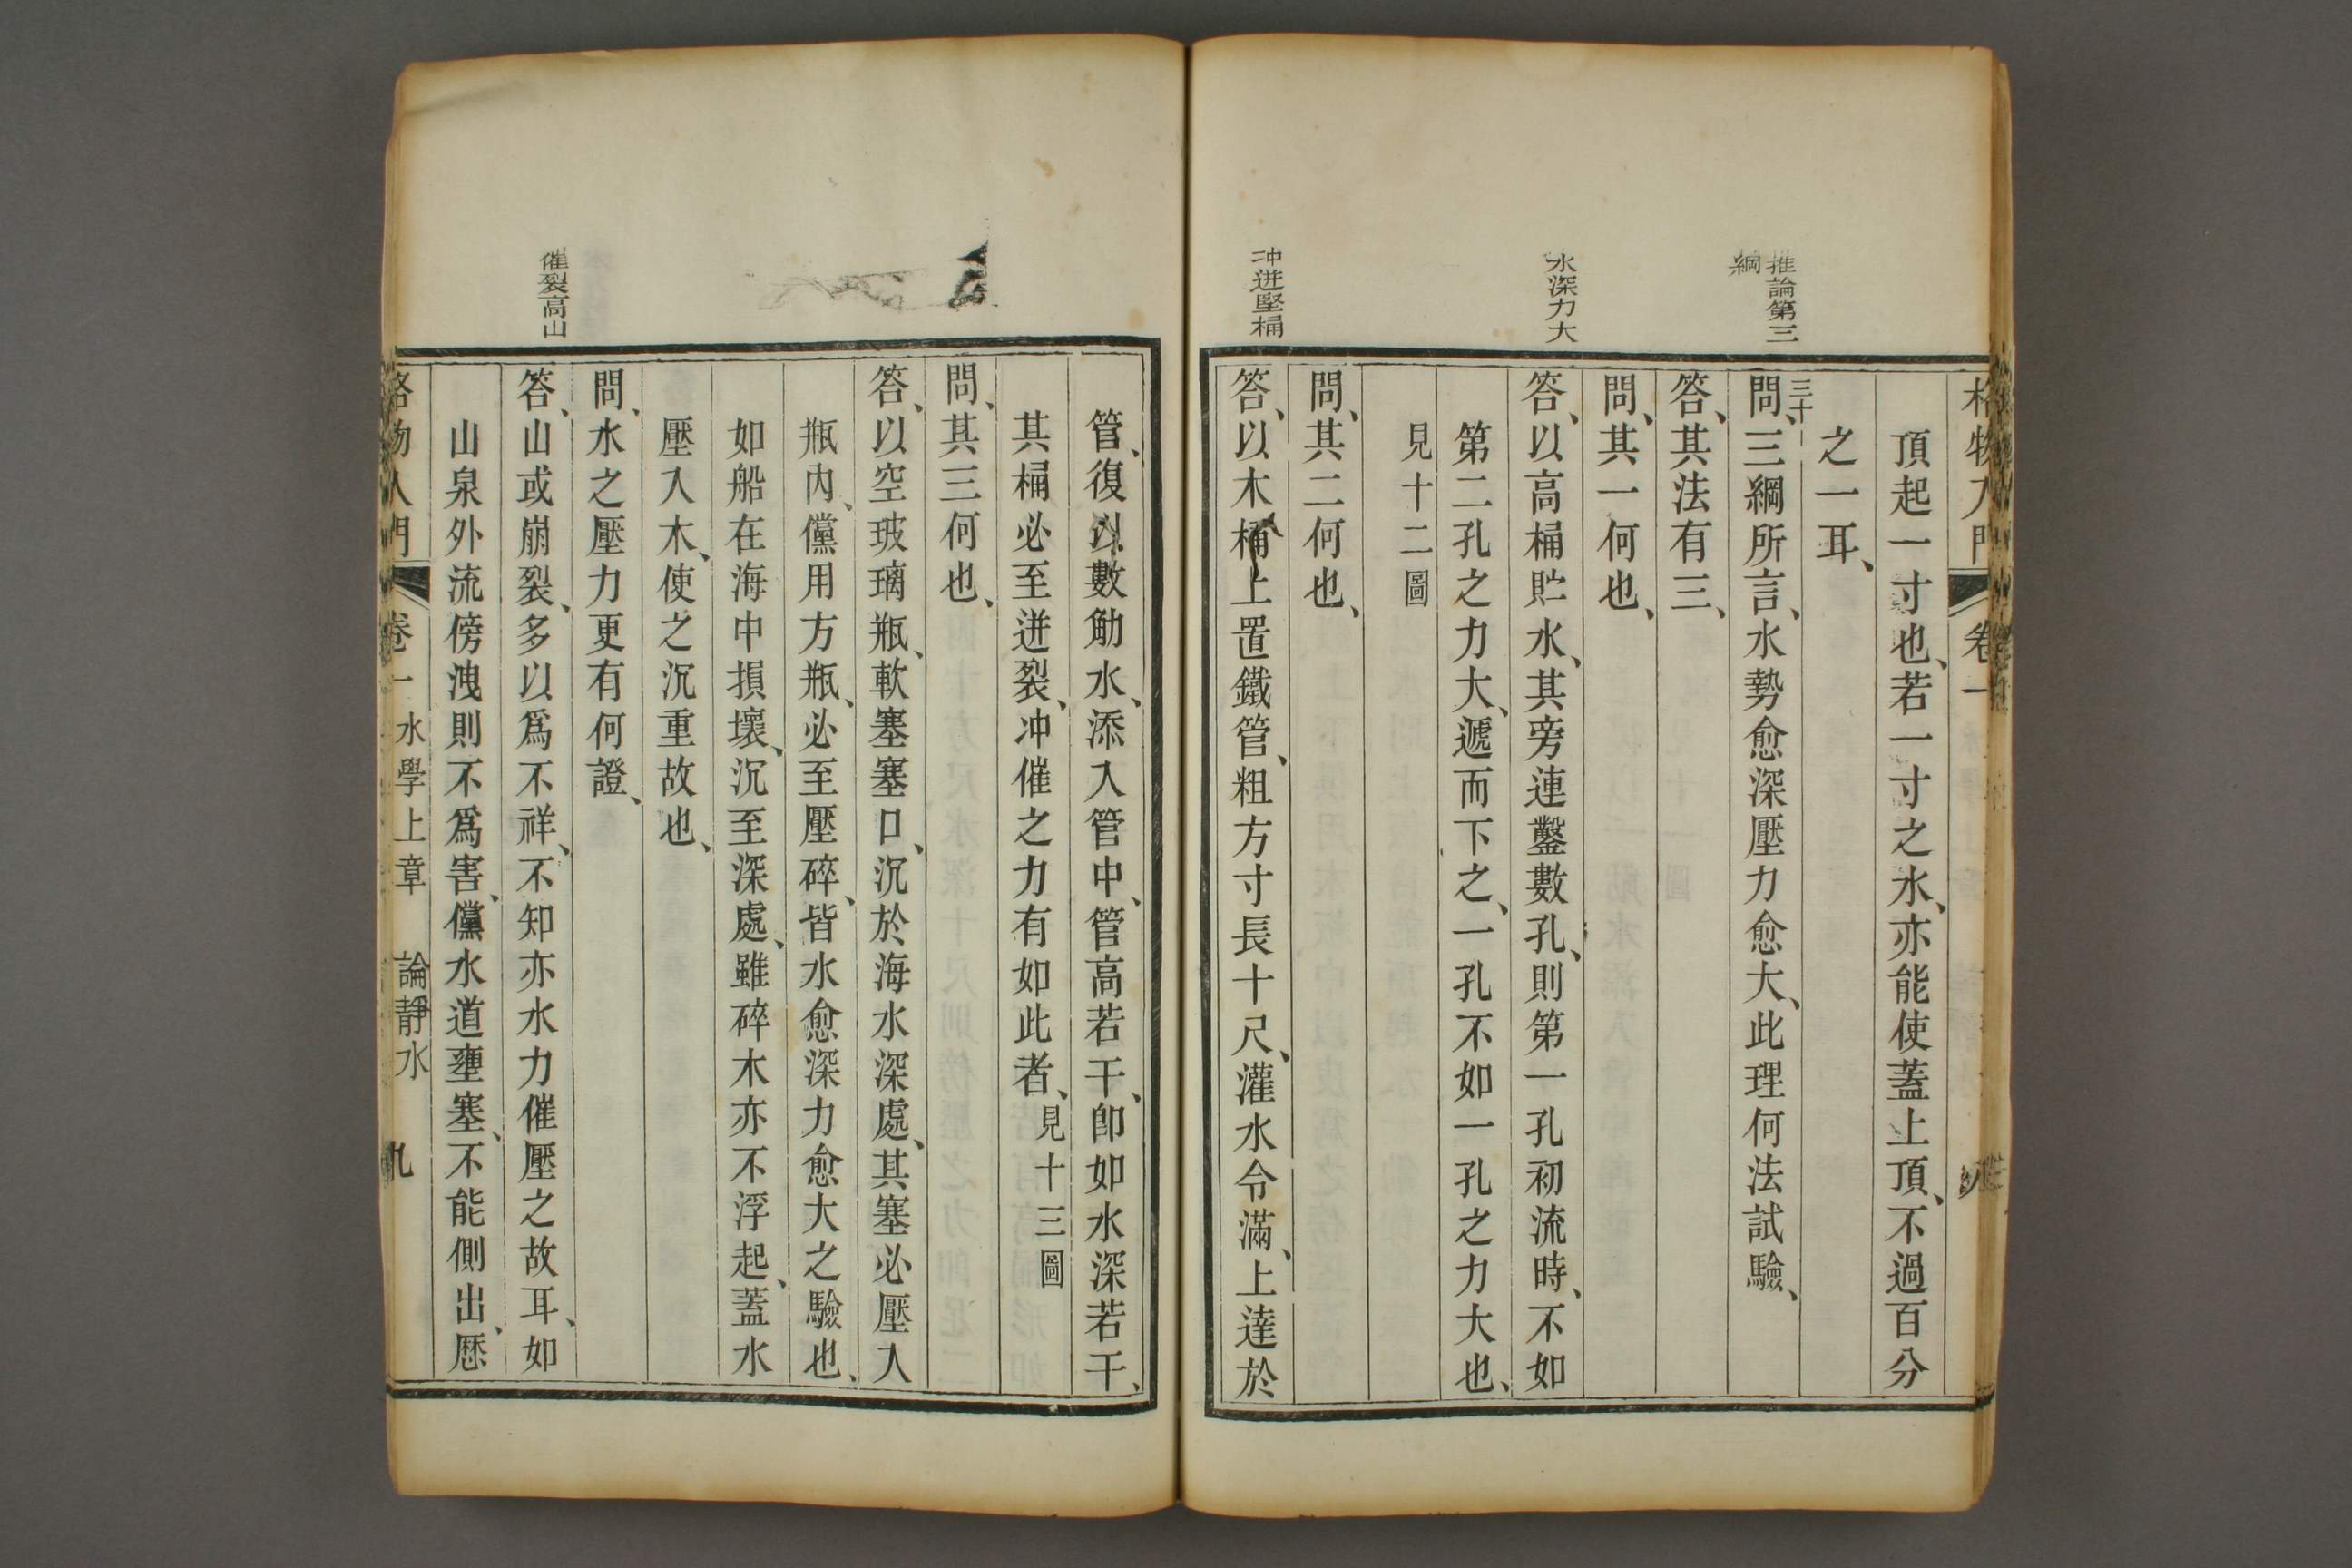 格物入門 卷一
頂起一寸也、若一寸之水、亦能使蓋上頂、不過百分
之一耳、
推論第三
綱
三十
問、三綱所言、水勢愈深壓力愈大、此理何法試驗、
答、其法有三、
問、其一何也、
水深力大
答、以高桶貯水、其旁連鑿數孔、則第一孔初流時、不如
第二孔之力大、遞而下之、一孔不如一孔之力大也、
見十二圖
問、其二何也、
冲迸堅桶
答、以木桶上置鐵管、粗方寸長十尺、灌水令滿、上達於
管、復以數觔水、添入管中、管高若干、卽如水深若干、
其桶必至迸裂、冲催之力有如此者、見十三圖
問、其三何也、
答、以空玻璃瓶、軟塞塞口、沉於海水深處、其塞必壓入
瓶內、儻用方瓶、必至壓碎、皆水愈深力愈大之驗也、
如船在海中損壞、沉至深處、雖碎木亦不浮起、蓋水
壓入木、使之沉重故也、
問、水之壓力更有何證、
催裂高山
答、山或崩裂、多以爲不祥、不知亦水力催壓之故耳、如
山泉外流傍洩則不爲害、儻水道壅塞、不能側出、歷
格物入門 卷一 水學上章 論靜水 九